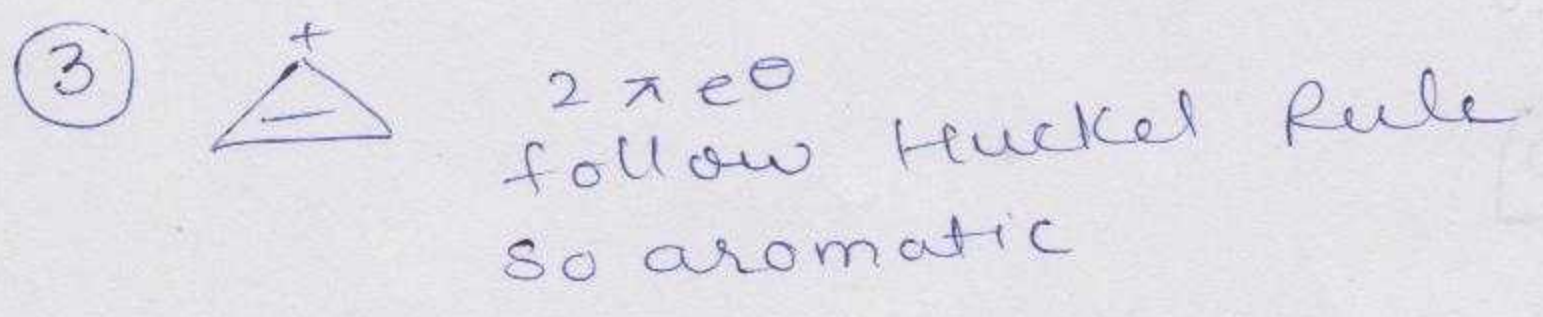 3 + 2 π e⊖
follow Huckel Rule
so aromatic